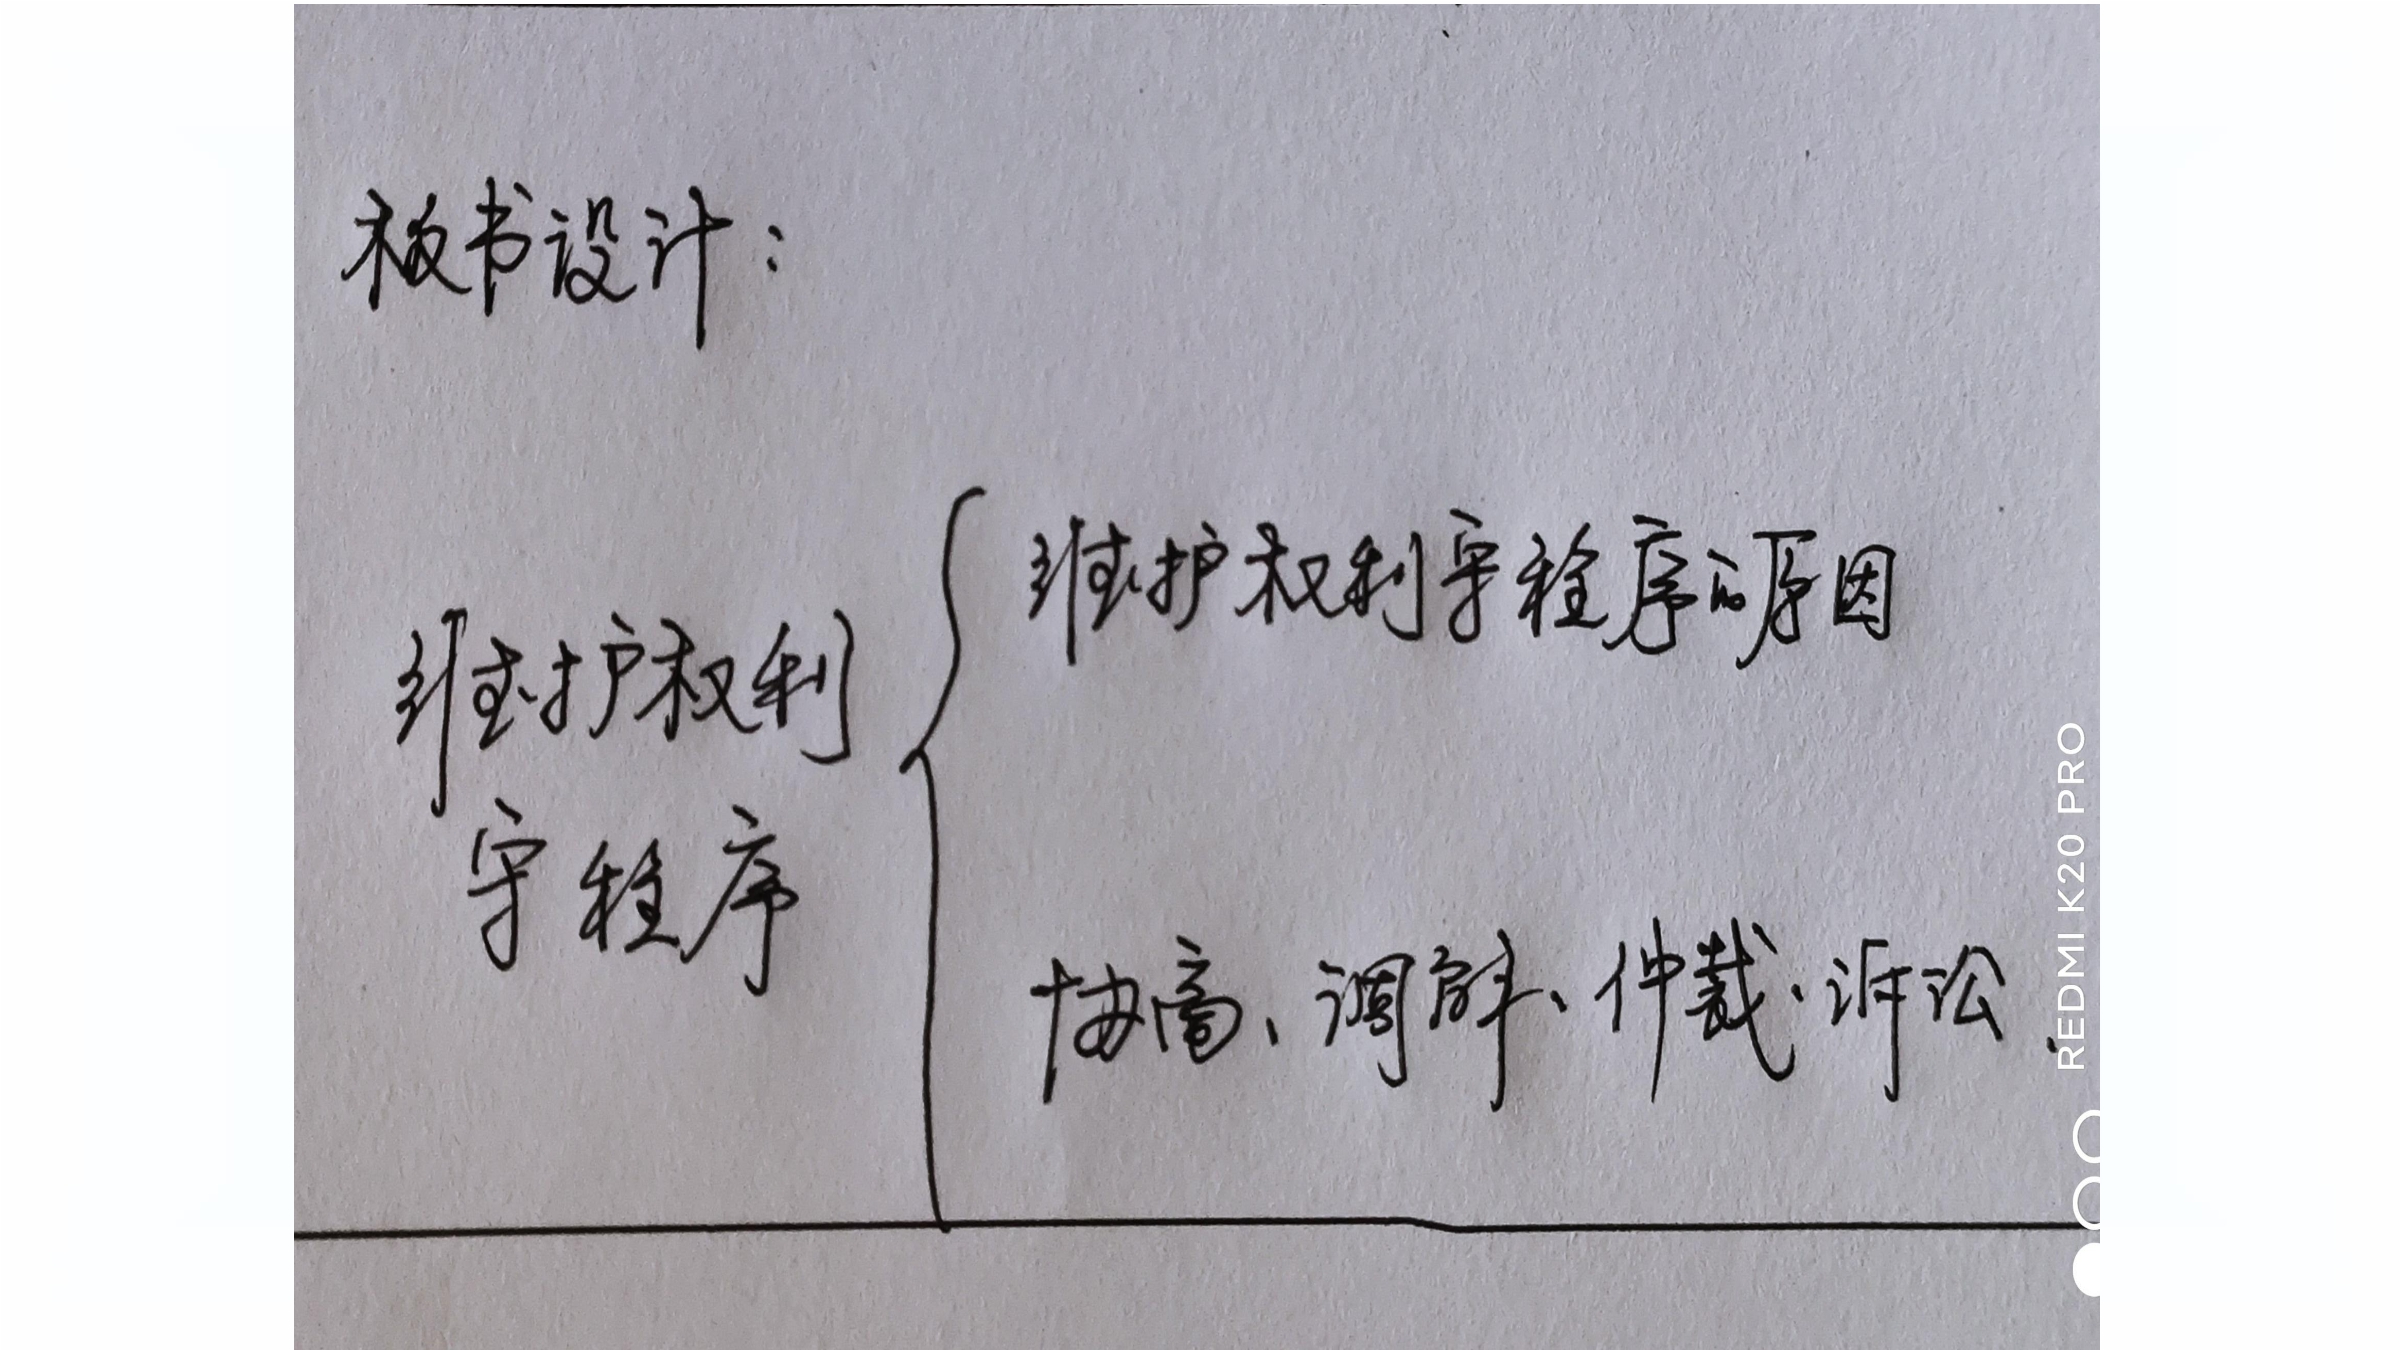 板书设计：
维护权利
守程序
维护权利守程序的原因
协商、调解、仲裁、诉讼.
REDMI K20 PRO